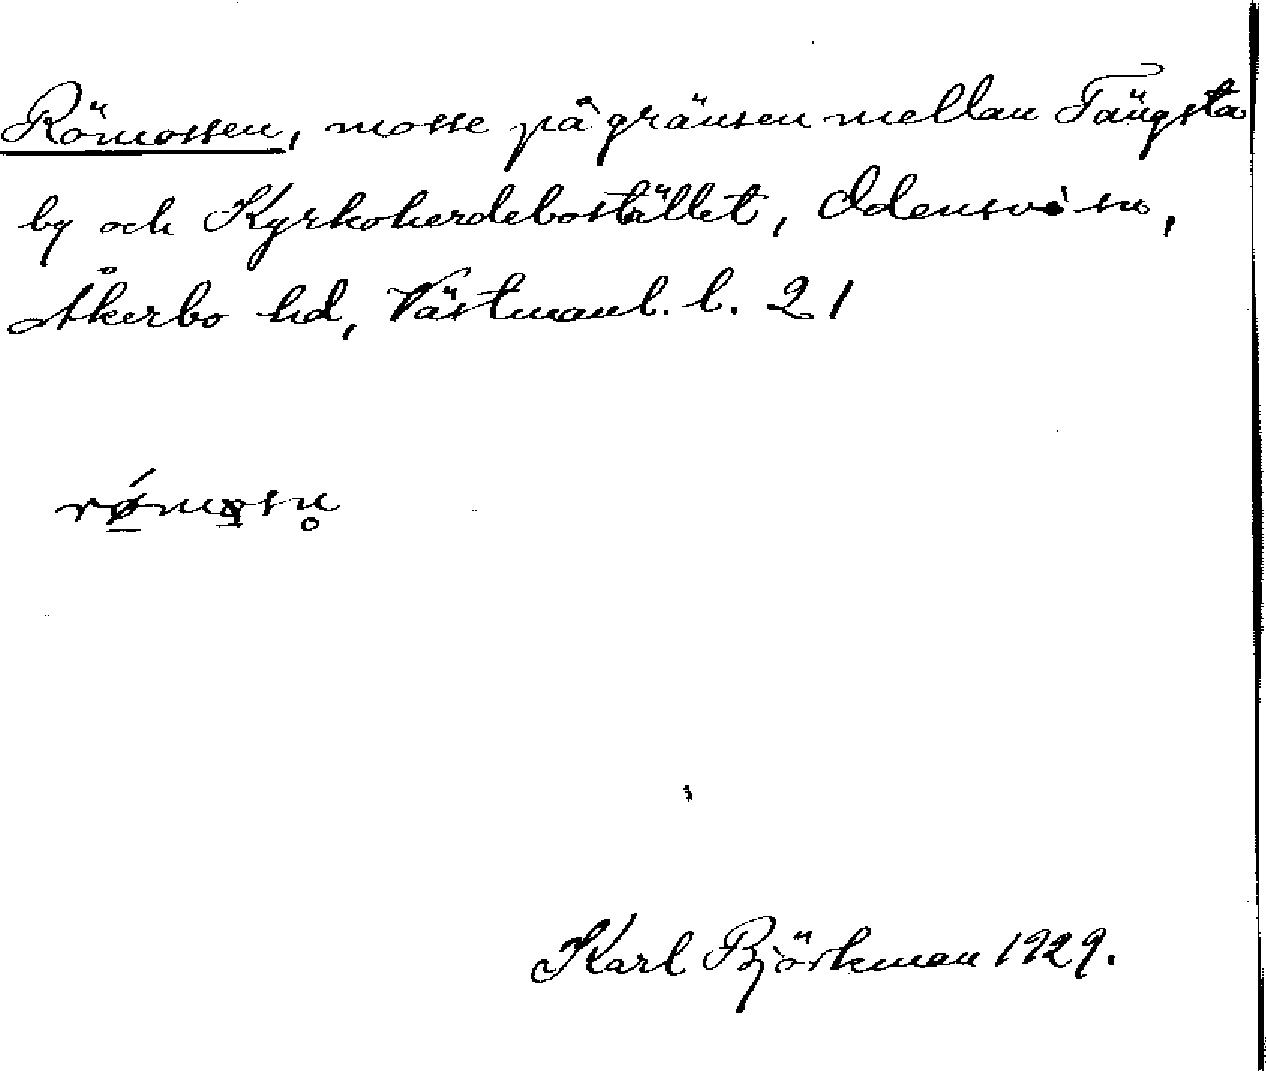 Römossen, mosse på gränsen mellan Tängsta
by och Kyrkoherdebostället, Odensvi sn,
Åkerbo hd, Västmanl. l. 21
Karl Björkman 1929.